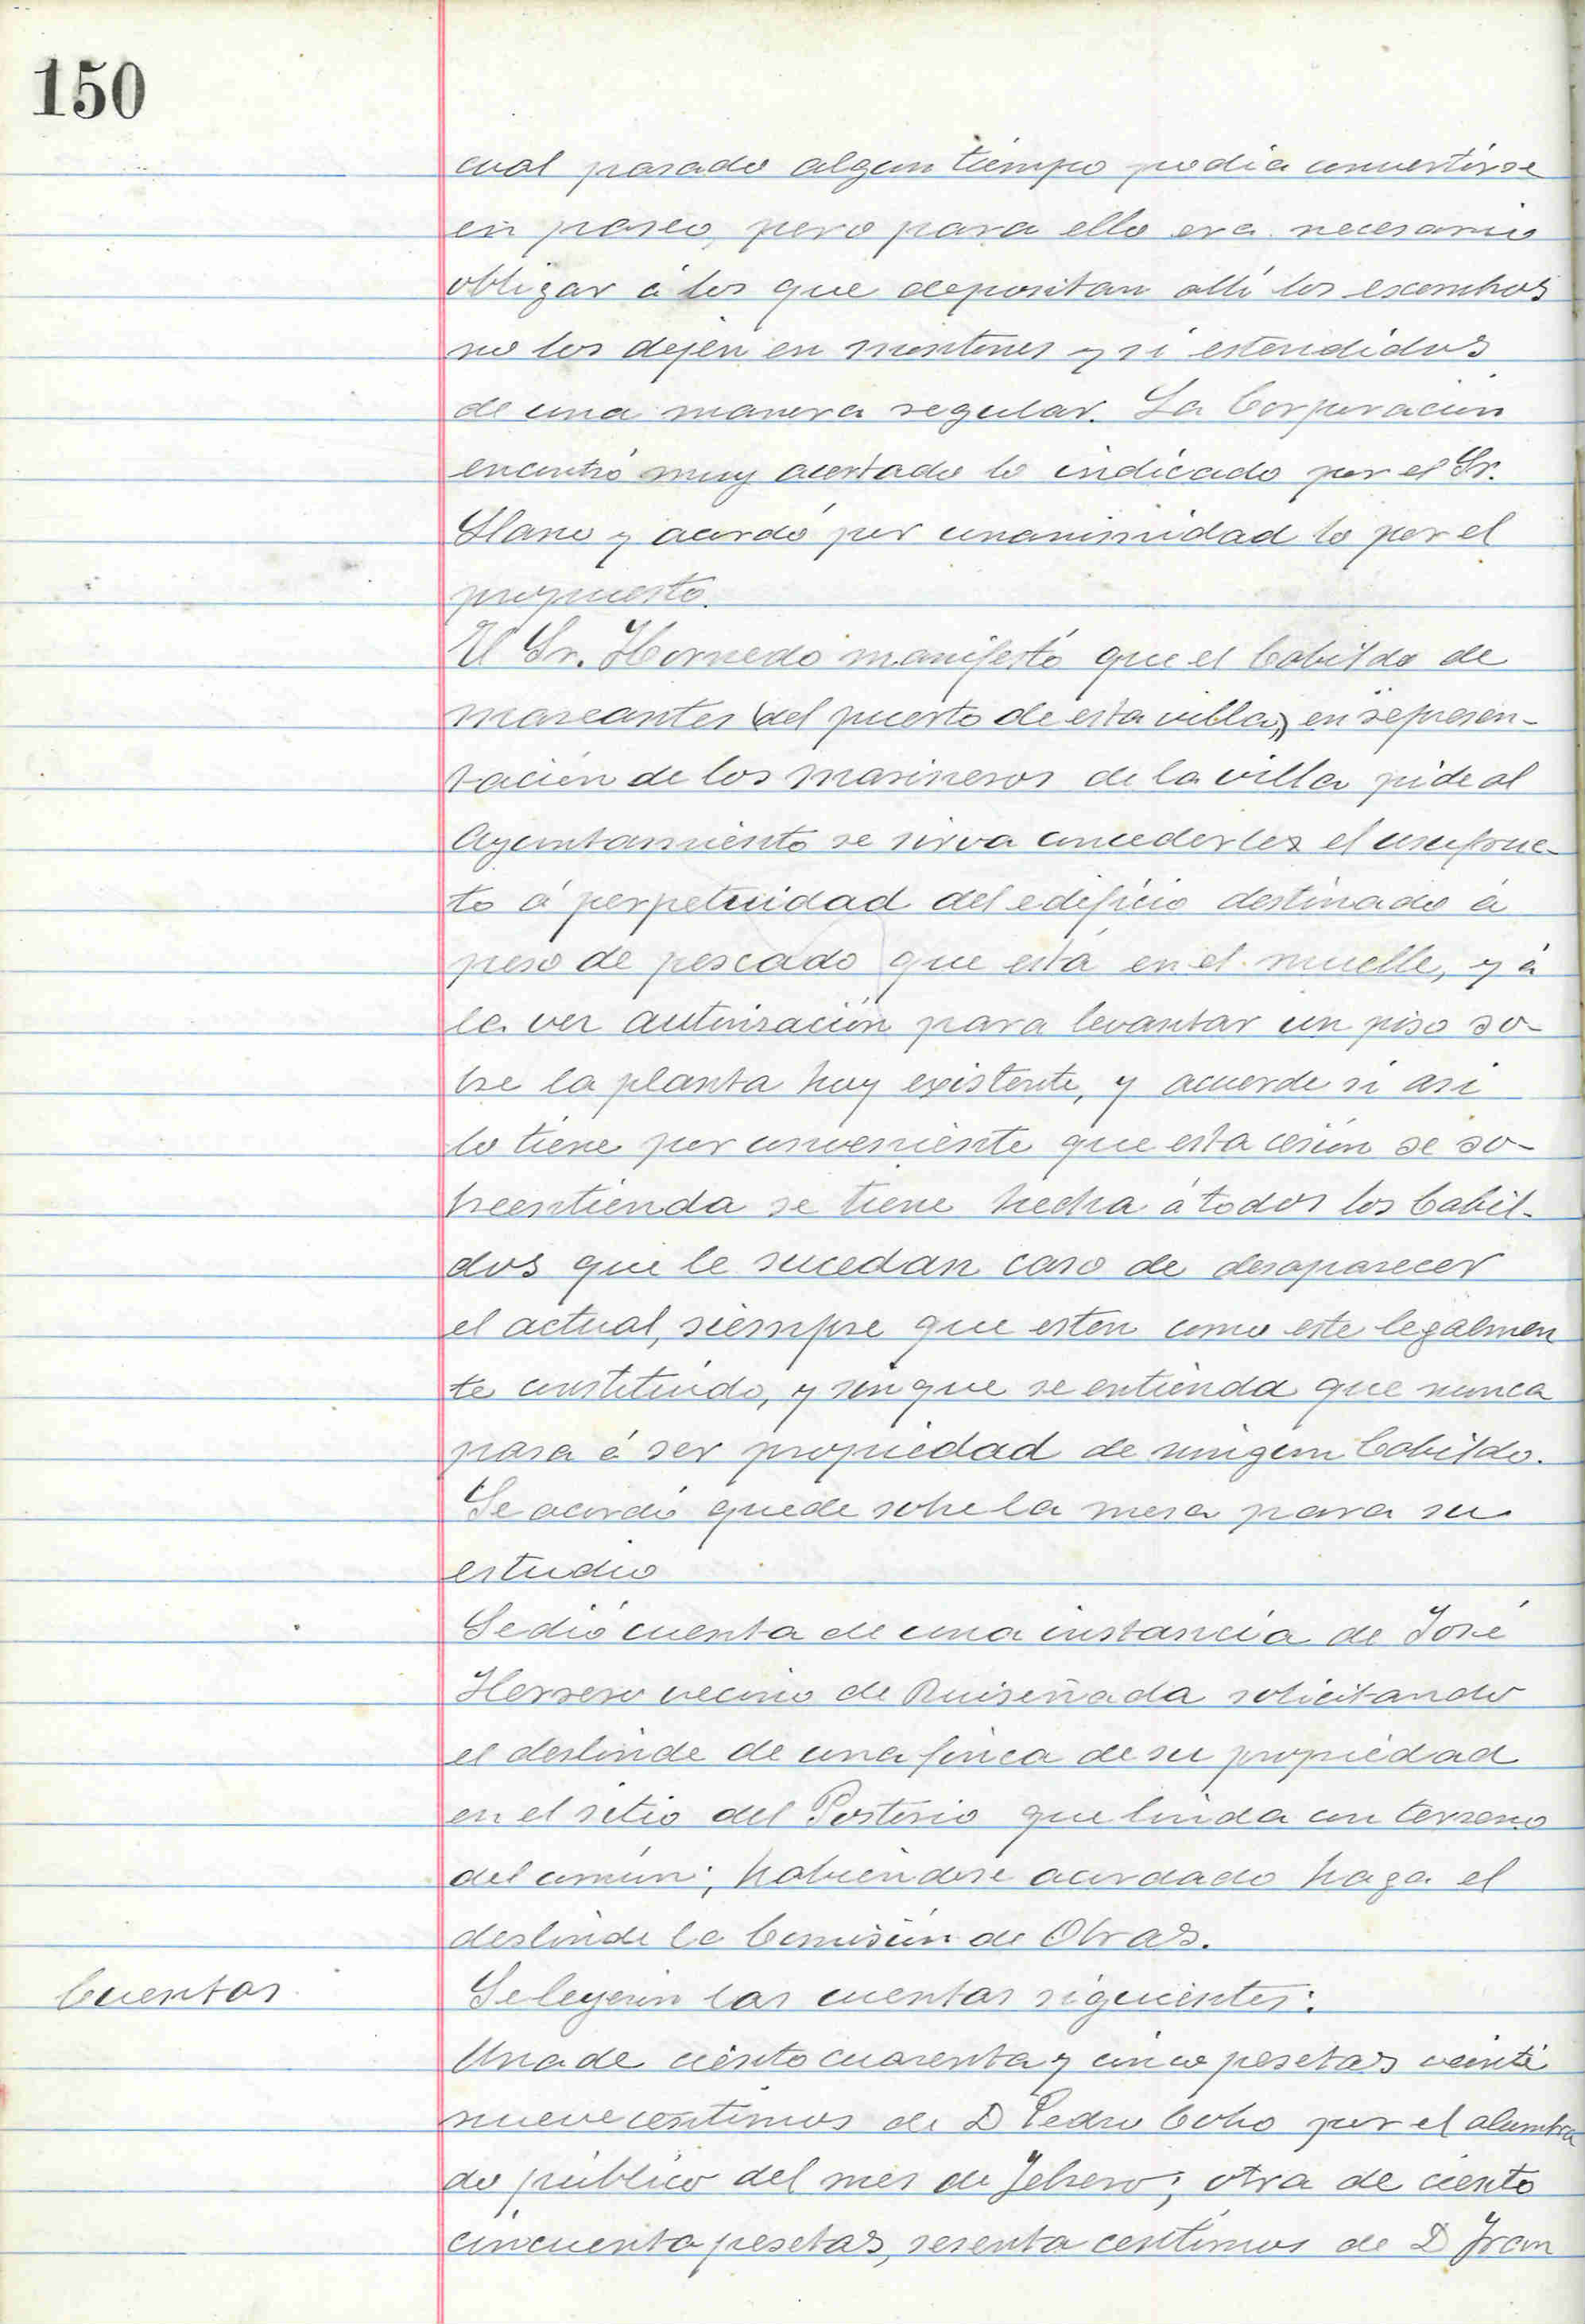 150
cual pasado algun tiempo podia convertirse
en paseo, pero para ello era necesario
obligar á los que depositan allí los escombros
no los dejen en montones y si estendidos
de una manera regular. La Corporación
encontró muy acertado lo indicado por el Sr.
Llano y acordó por unanimidad lo por el
propuesto.
El Sr. Hornedo manifestó que el Cabildo de
mareantes (del puerto de esta villa,) en represen-
tación de los marineros de la villa pide al
Ayuntamiento se sirva concederles el usufruc-
to á perpetuidad del edificio destinado á
peso de pescado que está en el muelle, y á
la vez autorisación para levantar un piso so-
bre la planta hoy existente, y acuerde si asi
lo tiene por conveniente que esta cesión se so-
breentienda se tiene hecha á todos los Cabil-
dos que le sucedan caso de desaparecer
el actual, siempre que esten como este legalmen
te constituido, y sin que se entienda que nunca
pasa á ser propiedad de ningun Cabildo.
Se acordó quede sobre la mesa para su
estudio
Se dió cuenta de una instancia de José
Herrero vecino de Ruiseñada solicitando
el deslinde de una finca de su propiedad
en el sitio del Porterio que linda con terreno
del común; habiendose acordado haga el
deslinde la Comisión de Obras.
Cuentas
Se leyeron las cuentas siguientes:
Una de ciento cuarenta y cinco pesetas veinti
nueve centimos de D Pedro Cobo por el alumbra
do público del mes de Febrero; otra de ciento
cincuenta pesetas, sesenta centimos de D Fran